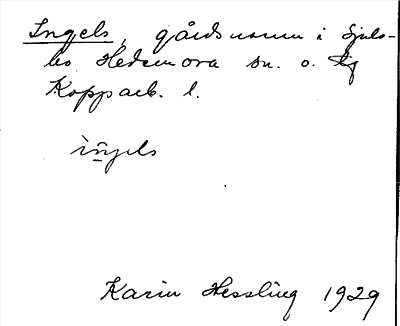 Ingels, gårdsnamn i Sjuls-
bo Hedemora sn. o. tg
Kopparb. l.
ìŋ̄els
Karin Hessling 1929